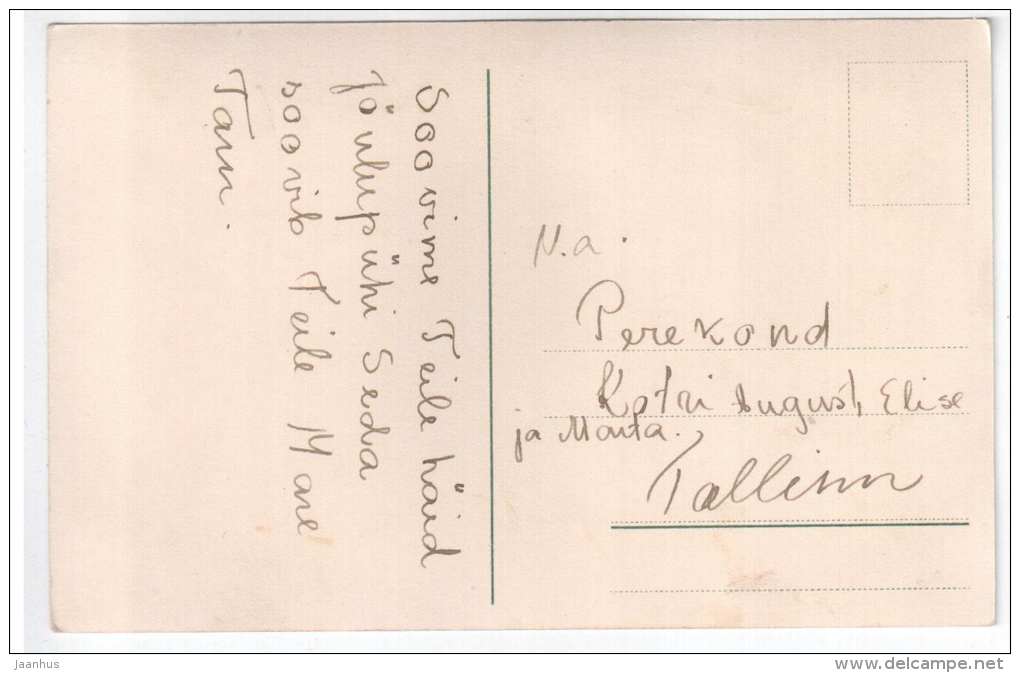 Soovime Teile häid
jõulupühi Seda
soovib Teile Mare
Tam.
N.a.
Perekond
Kotri August, Elise
ja Marta.,
Tallinn
Jaanhus
www.delcampe.net